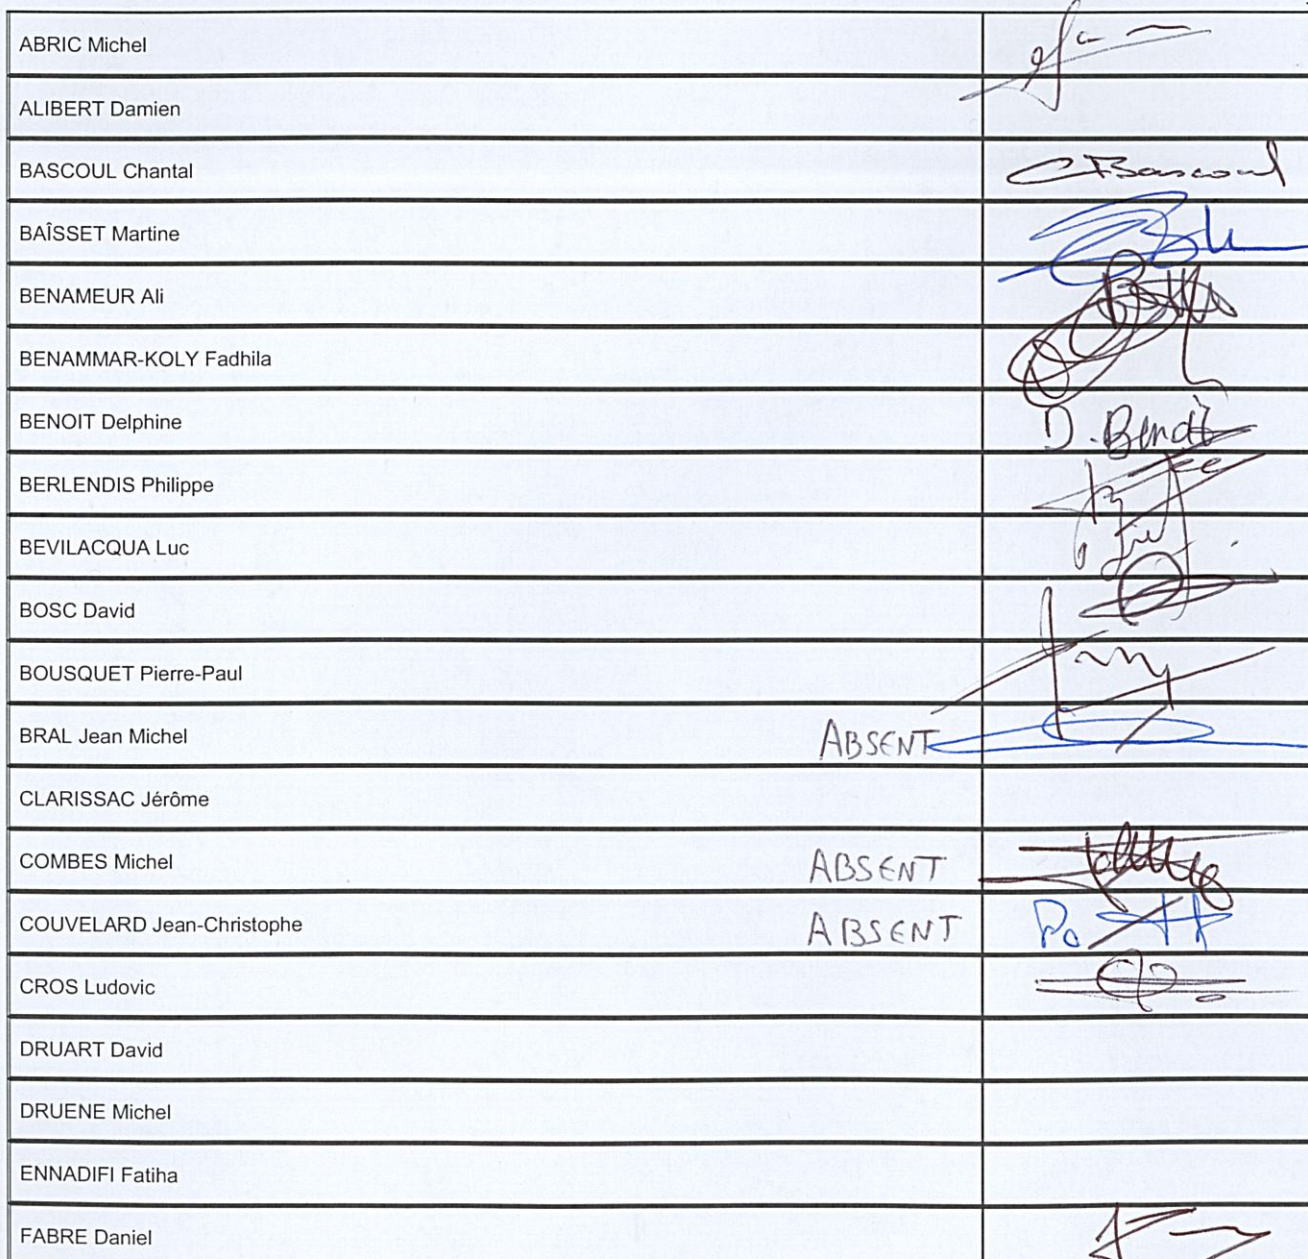 ABRIC Michel
ALIBERT Damien
BASCOUL Chantal CBascoul
BAÎSSET Martine
BENAMEUR Ali
BENAMMAR-KOLY Fadhila
BENOIT Delphine D. Benoit
BERLENDIS Philippe
BEVILACQUA Luc
BOSC David
BOUSQUET Pierre-Paul
BRAL Jean Michel ABSENT
CLARISSAC Jérôme
COMBES Michel ABSENT
COUVELARD Jean-Christophe ABSENT
CROS Ludovic
DRUART David
DRUENE Michel
ENNADIFI Fatiha
FABRE Daniel